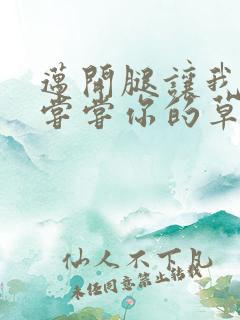 邁開腿讓我
嘗嘗你的草
仙人不下凡
未经同意禁止转载